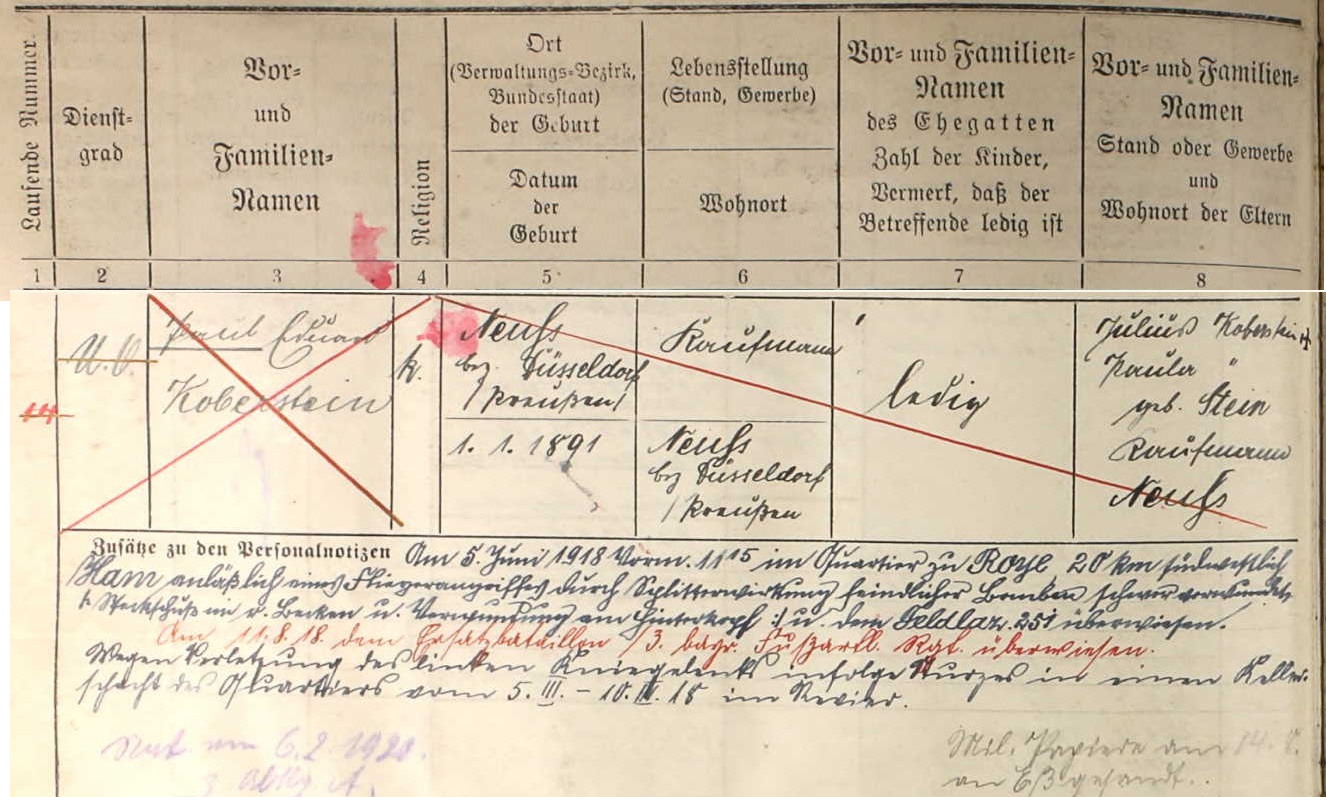 Laufende Nummer.
Dienst-
grad
Vor-
und
Familien-
Namen
Religion
Ort
(Verwaltungs-Bezirk,
Bundesstaat)
der Geburt
Datum
der
Geburt
Lebensstellung
(Stand, Gewerbe)
Wohnort
Vor- und Familien-
Namen
des Ehegatten
Zahl der Kinder,
Vermerk, daß der
Betreffende ledig ist
Vor- und Familien-
Namen
Stand oder Gewerbe
und
Wohnort der Eltern
1 2 3 4 5 6 7 8
14
U.O.
Paul Eduard
Koberstein
k.
Neuß
bez. Düsseldorf
/Preußen/
1. 1. 1891
Kaufmann
Neuß
bez Düsseldorf
/Preußen
ledig
Julius Koberstein
Paula "
geb. Stein
Kaufmann
Neuß
Zusätze zu den Personalnotizen Am 5 Juni 1918 Vorm. 11 15 im Quartier zu Roye 20 km südwestlich
Ham anläßlich eines Fliegerangriffes durch Splitterwirkung feindlicher Bomben schwer verwundet,
Steckschuß im r. Becken u. Verwundung am Hinterkopf :/ u. dem Feldlaz. 251 überwiesen.
Am 11.8.18. dem Ersatzbataillon /3. bayr. Fußartl. Rgt. überwiesen.
Wegen Verletzung des linken Kniegelenks infolge Sturzes in einen Keller-
schacht des Quartiers vom 5. III. - 10. III. 18 im Revier.
am 6.2.1920.
Mil. Papiere am 14. 8.
an E/3 gesandt.